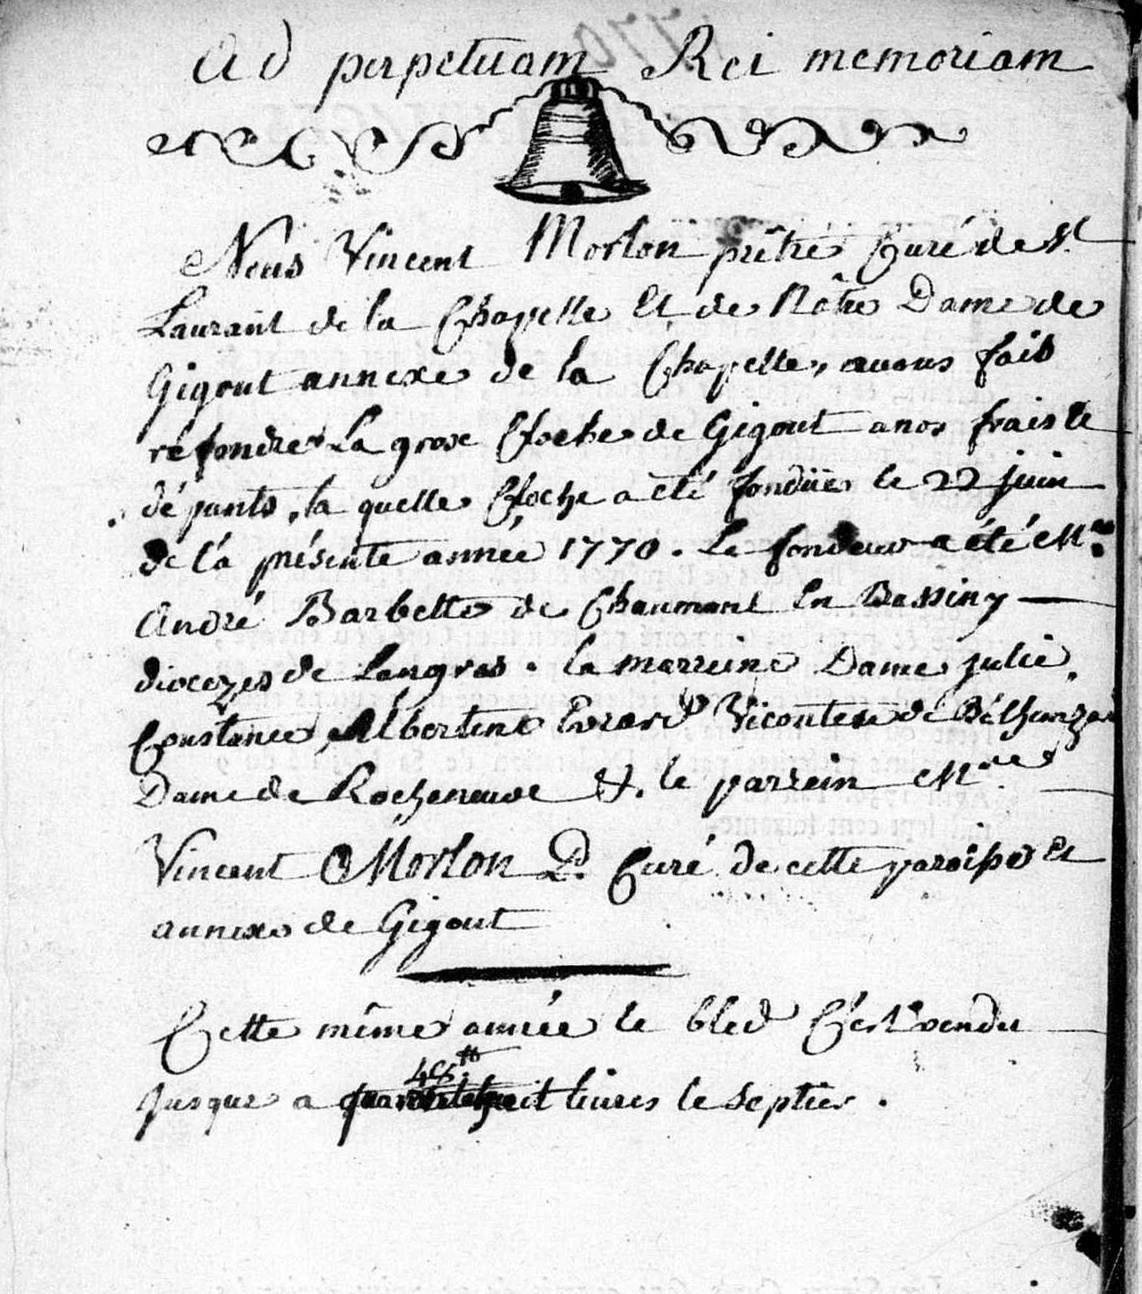 Ad perpetuam Rei memoriam
Nous Vincent Morlon prêtre Curé de St
Laurant de la Chapelle Et de Nôtre Dame de
Gigout annexe de la Chapelle, avons fait
refondre La grose Cloche de Gigout a nos frais le
dépants, la quelle Cloche a été fondüe le 22 juin
de la présente année 1770. Le fondeur a été Mre
André Barbette de Chaumont En Bassiny
diocezes de Langres. la marreine Dame julie
Constance Albertine Evrard Vicontese de
Dame de Rocheneuve &. le parrein
Vincent Morlon P. Curé de cette paroisse Et
annexe de Gigout
Cette même année le bled C'est vendu
jusque a livres le septier.